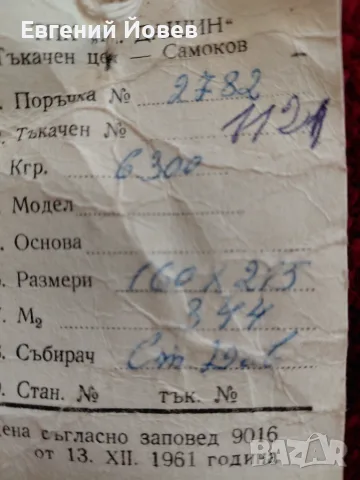 Евгений Йовев
Тъкачен це — Самоков
. Поръчка № 2782
. Тъкачен № 1121
Кгр. 6300
. Модел
. Основа
. Размери 160 X 215
. М₂ 344
. Събирач Ст
. Стан. № тък. №
цена съгласно заповед 9016
от 13. XII. 1961 година
bazar